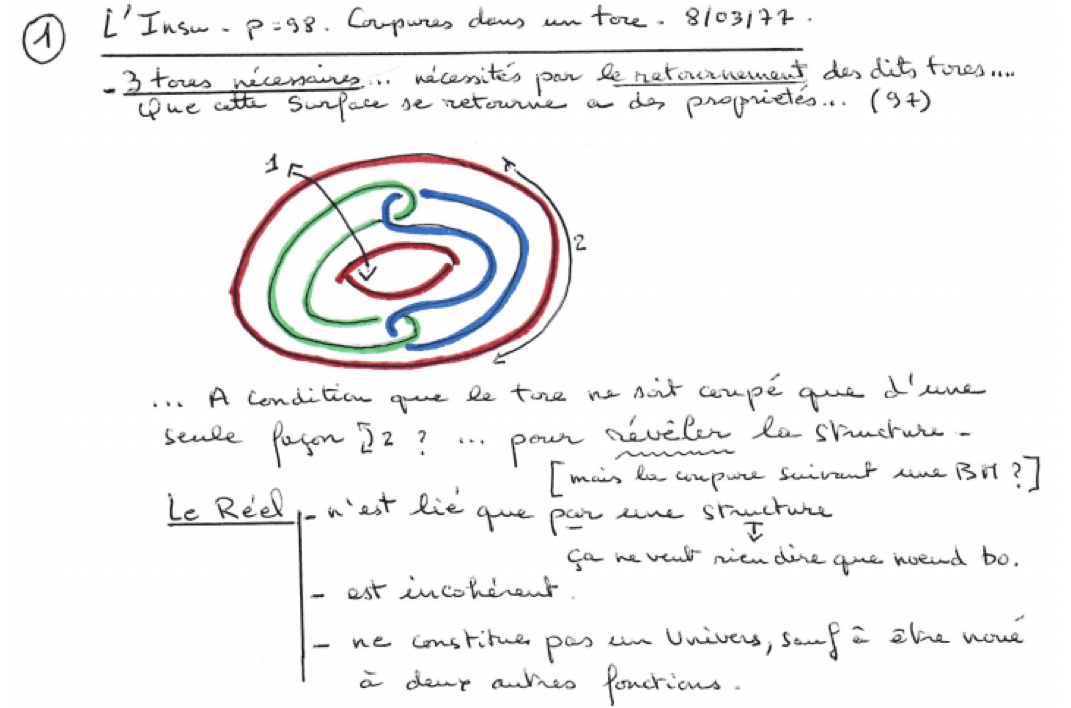 ① L'Insu - p=98. Coupures dans un tore. 8/03/77.
- 3 tores nécessaires... nécessités par le retournement des dits tores....
Que cette Surface se retourne a des propriétés... (97)
1
2
... A condition que le tore ne soit coupé que d'une
seule façon 2 ? ... pour révéler la structure -
[mais la coupure suivant une BM ?]
Le Réel - n'est lié que par une structure
ça ne veut rien dire que noeud bo.
- est incohérent.
- ne constitue pas un Univers, sauf à être noué
à deux autres fonctions.